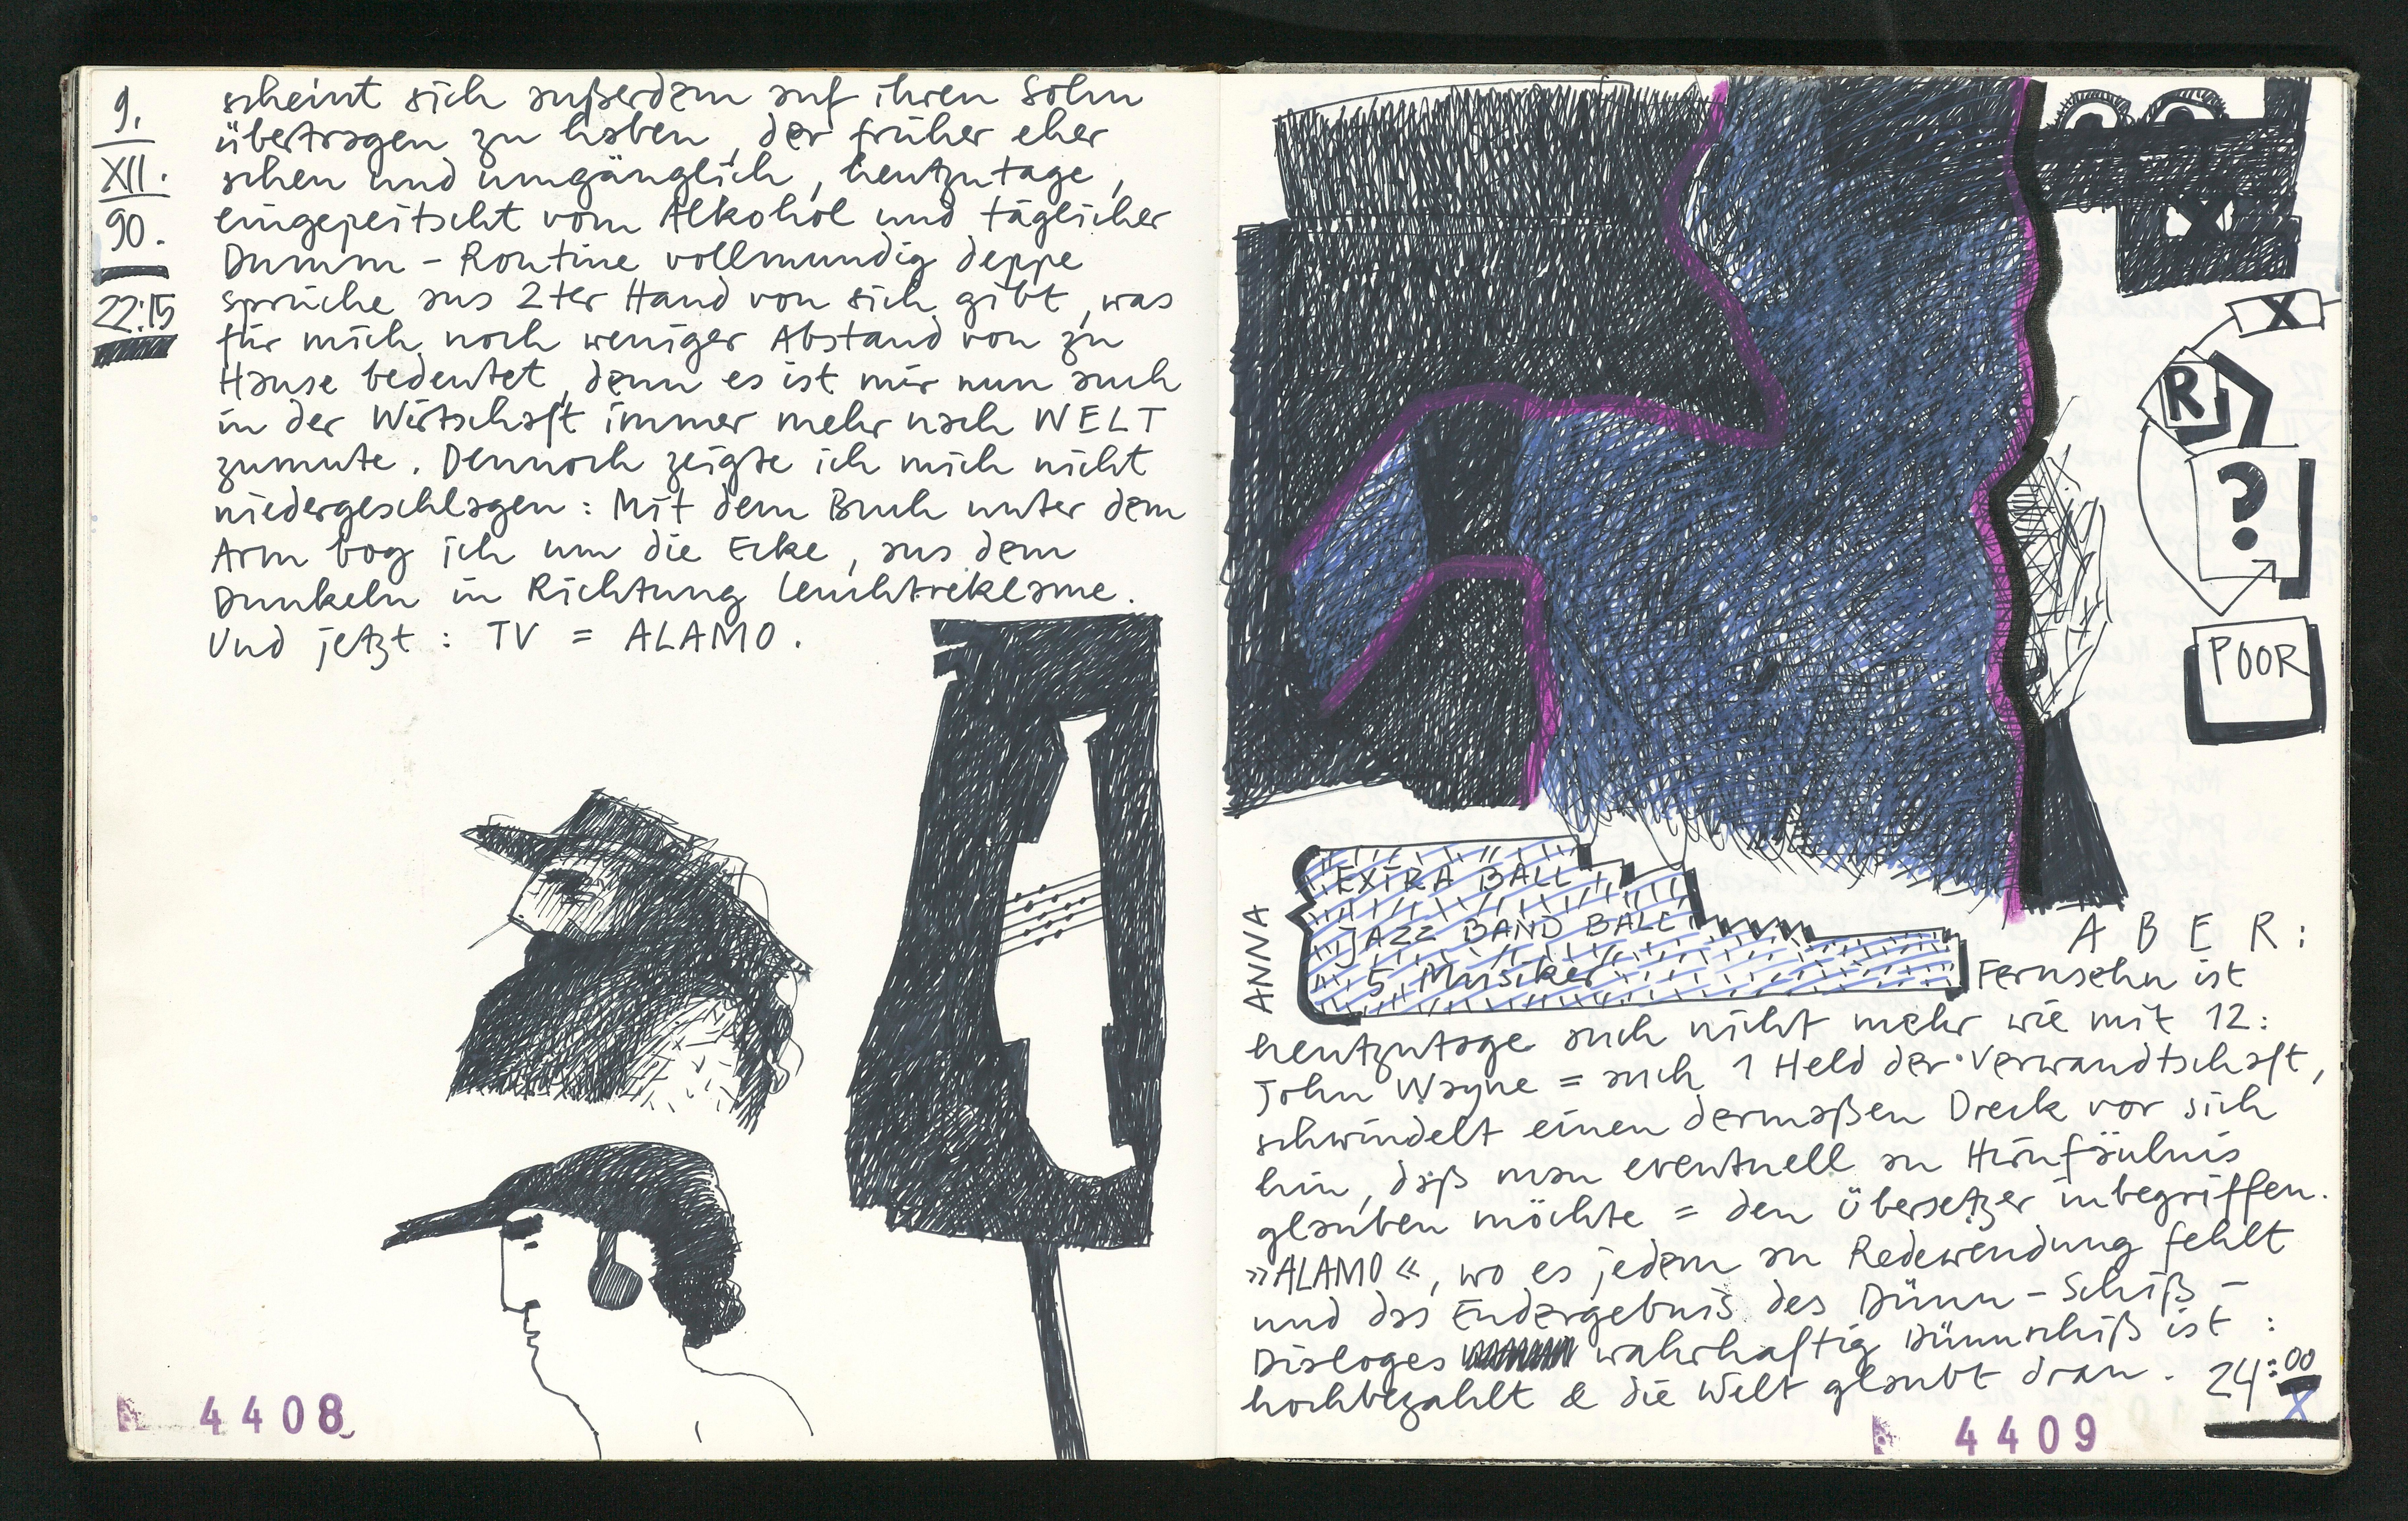 9.
XII.
90.
22:15
scheint sich außerdem auf ihren Sohn
übertragen zu haben, der früher eher
scheu und umgänglich, heutzutage,
eingepeitscht vom Alkohol und täglicher
Dumm-Routine vollmundig deppe
sprüche aus 2ter Hand von sich gibt, was
für mich noch weniger Abstand von zu
Hause bedeutet, denn es ist mir nun auch
in der Wirtschaft immer mehr nach WELT
zumute. Dennoch zeigte ich mich nicht
niedergeschlagen: Mit dem Buch unter dem
Arm bog ich um die Ecke, aus dem
Dunkeln in Richtung Leuchtreklame.
Und jetzt: TV = ALAMO.
4408
X
X
R
?
POOR
ANNA
EXTRA BALL
JAZZ BAND BALL
5 Musiker
ABER:
Fernsehn ist
heutzutage auch nicht mehr wie mit 12:
John Wayne = auch 1 Held der Verwandtschaft,
schwindelt einen dermaßen Dreck vor sich
hin, daß man eventuell an Hirnfäulnis
glauben möchte = den Übersetzer inbegriffen.
»ALAMO«, wo es jedem an Redewendung fehlt
und das Endergebnis des Dünn-Schiß-
Dialoges wahrhaftig Dünnschiß ist:
hochbezahlt & die Welt glaubt dran. 24:00
X
4409